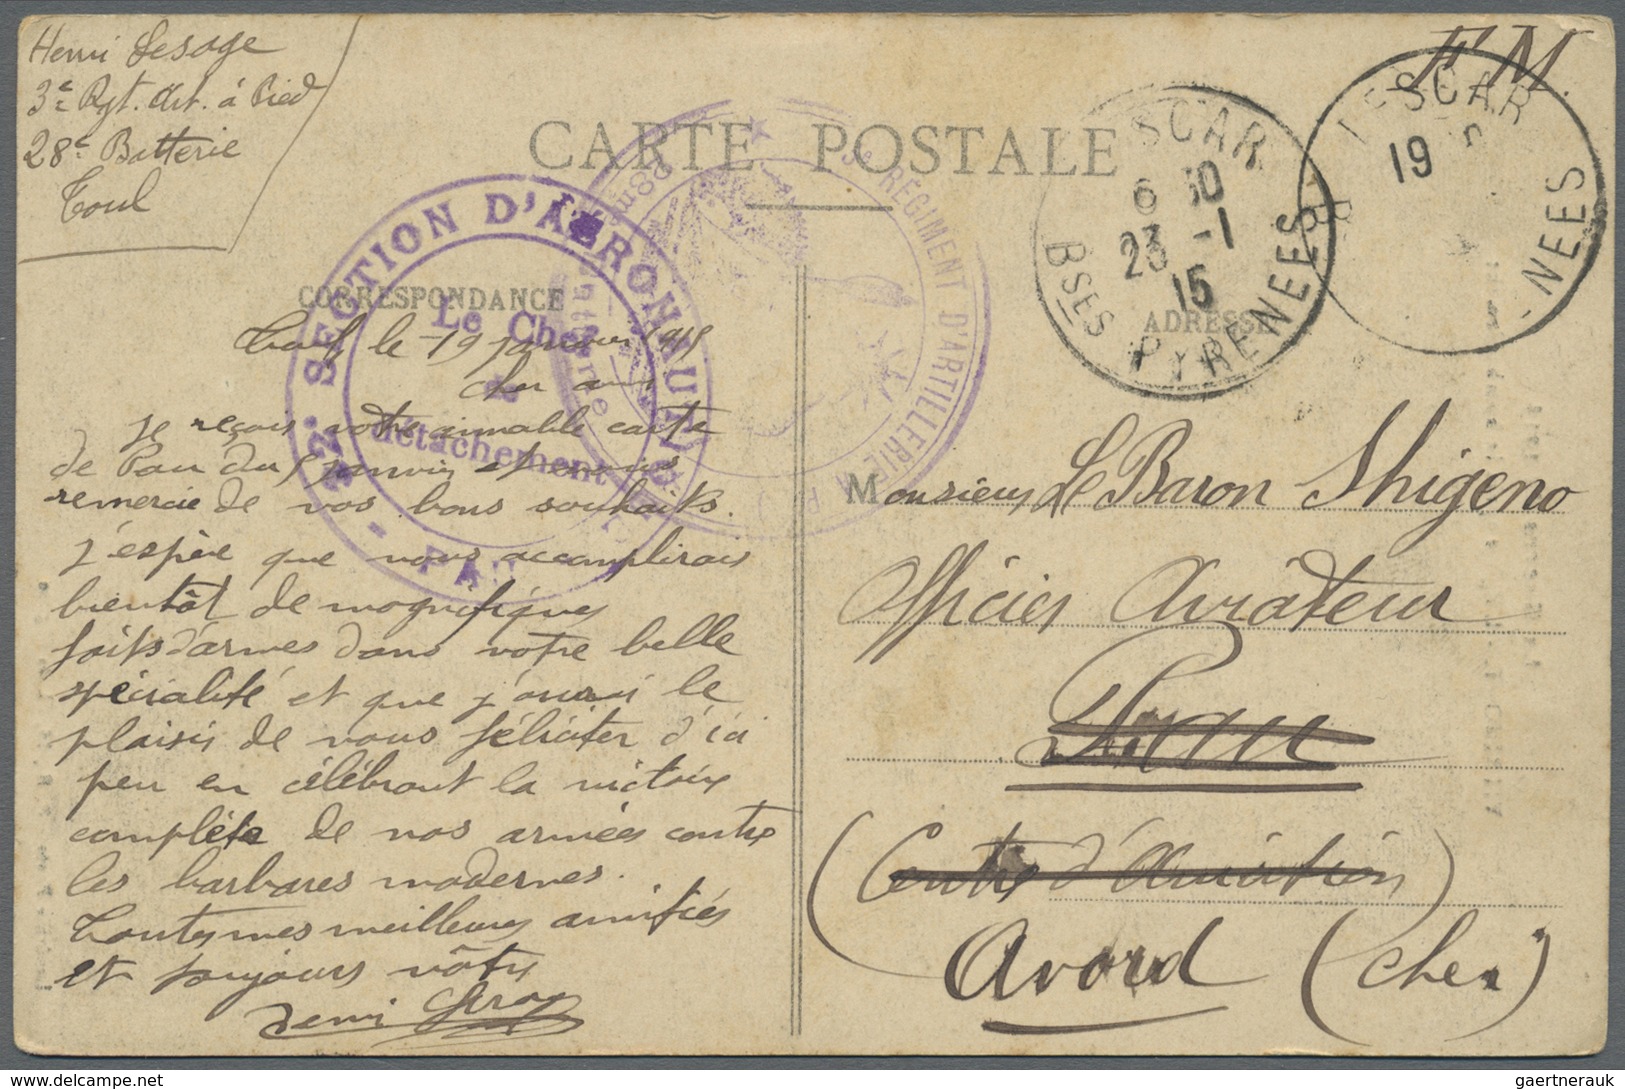 Henri Lesage
3e Rgt. Art. à Pied
28e Batterie
Toul
F. M.
CARTE POSTALE
3e REGIMENT D'ARTILLERIE A P.
28me Batterie
SECTION D'AERONAUTIQUE
Le Chef
de
détachement
PAU
LESCAR
6 30
23 -1
15
BSES PYRENEES
LESCAR
19
BSES -NEES
CORRESPONDANCE
ADRESSE
Toul, le 19 janvier 1915
Cher ami
Je reçois votre aimable carte
de Pau du 5 janvier et vous
remercie de vos bons souhaits.
J'espère que vous accomplirais
bientôt de magnifiques
faits d'armes dans votre belle
spécialité et que j'aurai le
plaisir de vous féliciter d'ici
peu en célébrant la victoire
complète de nos armées contre
les barbares modernes.
Toutes mes meilleures amitiés
et toujours vôtre
Henri
Monsieur Le Baron Shigeno
Officier Aviateur
Pau
(Centre d'Aviation)
Avord (Cher)
gaertnerauk @ delcampe.net